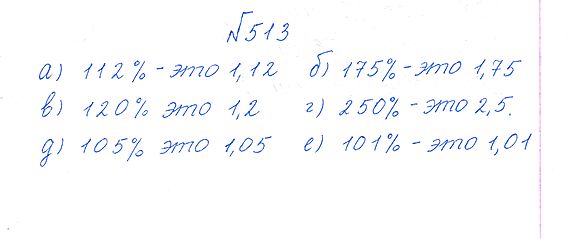 №513
а) 112% - это 1,12 б) 175% - это 1,75
в) 120% это 1,2 г) 250% - это 2,5.
д) 105% это 1,05 е) 101% - это 1,01